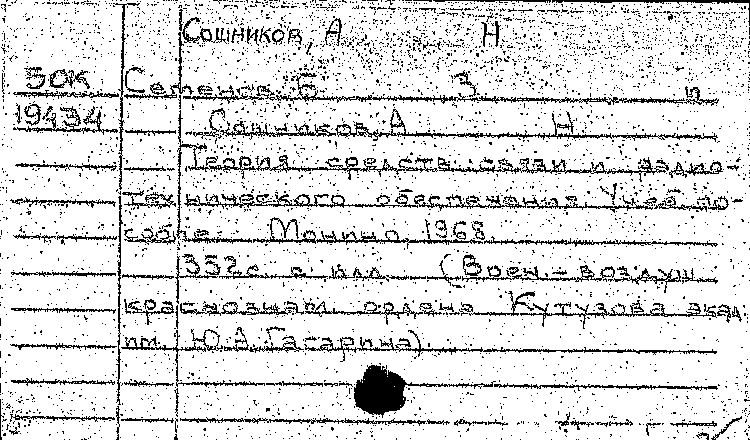 Сошников, А Н
50К Семенов Б З и
19434 Сошников, А Н
Теория средств связи и радио-
технического обеспечения. Учеб. по-
собие. Монино, 1968.
352 с. с илл. (Воен.-воздуш.
краснознам. ордена Кутузова акад.
им. Ю.А. Гагарина).